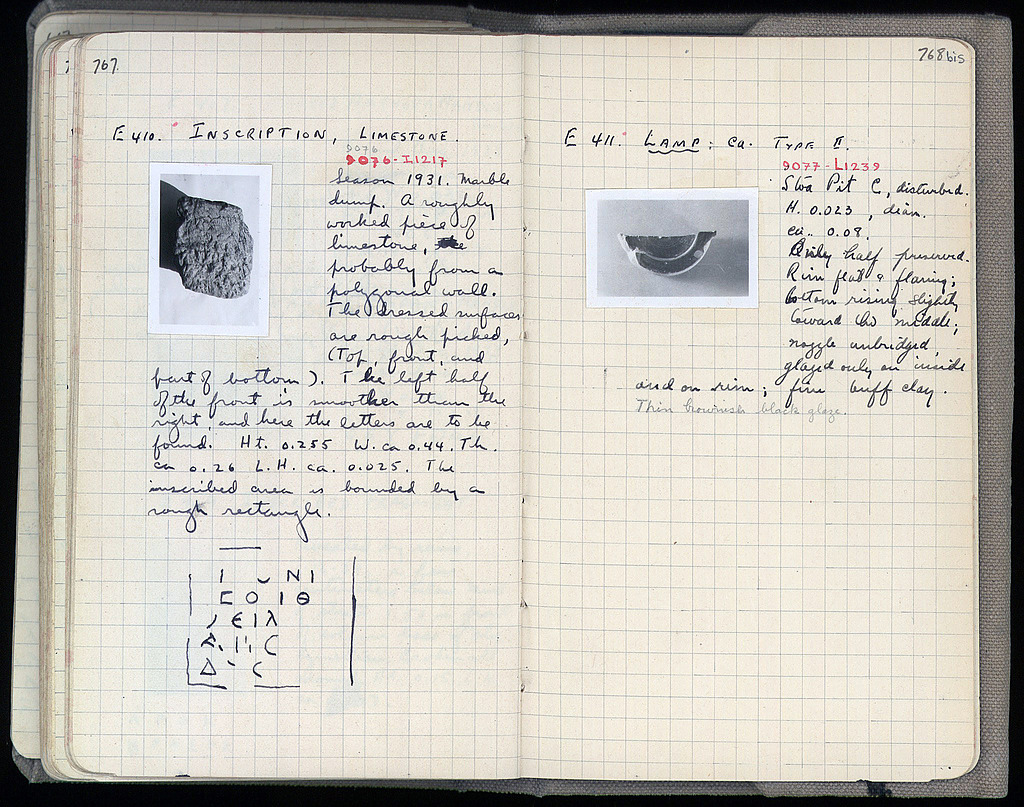 767.
E 410. INSCRIPTION, LIMESTONE.
9076
9076-I1217
Season 1931. Marble
dump. A roughly
worked piece of
limestone,
probably from a
polygonal wall.
The dressed surfaces
are rough picked,
(Top, front, and
part of bottom). The left half
of the front is smoother than the
right, and here the letters are to be
found. Ht. 0.255 W. ca 0.44. Th.
ca 0.26 L.H. ca. 0.025. The
inscribed area is bounded by a
rough rectangle.
Ι Ν Ι
Ο Ι Θ
Ε Ι λ
Α C
Δ C
768 bis
E 411. LAMP: ca. TYPE II.
9077-L1239
Stoa Pit C, disturbed.
H. 0.023, diam.
ca. 0.08.
Only half preserved.
Rim flat & flaring;
bottom rising slightly
toward the middle;
nozzle unbridged,
glazed only on inside
and on rim; fine buff clay.
Thin brownish black glaze.